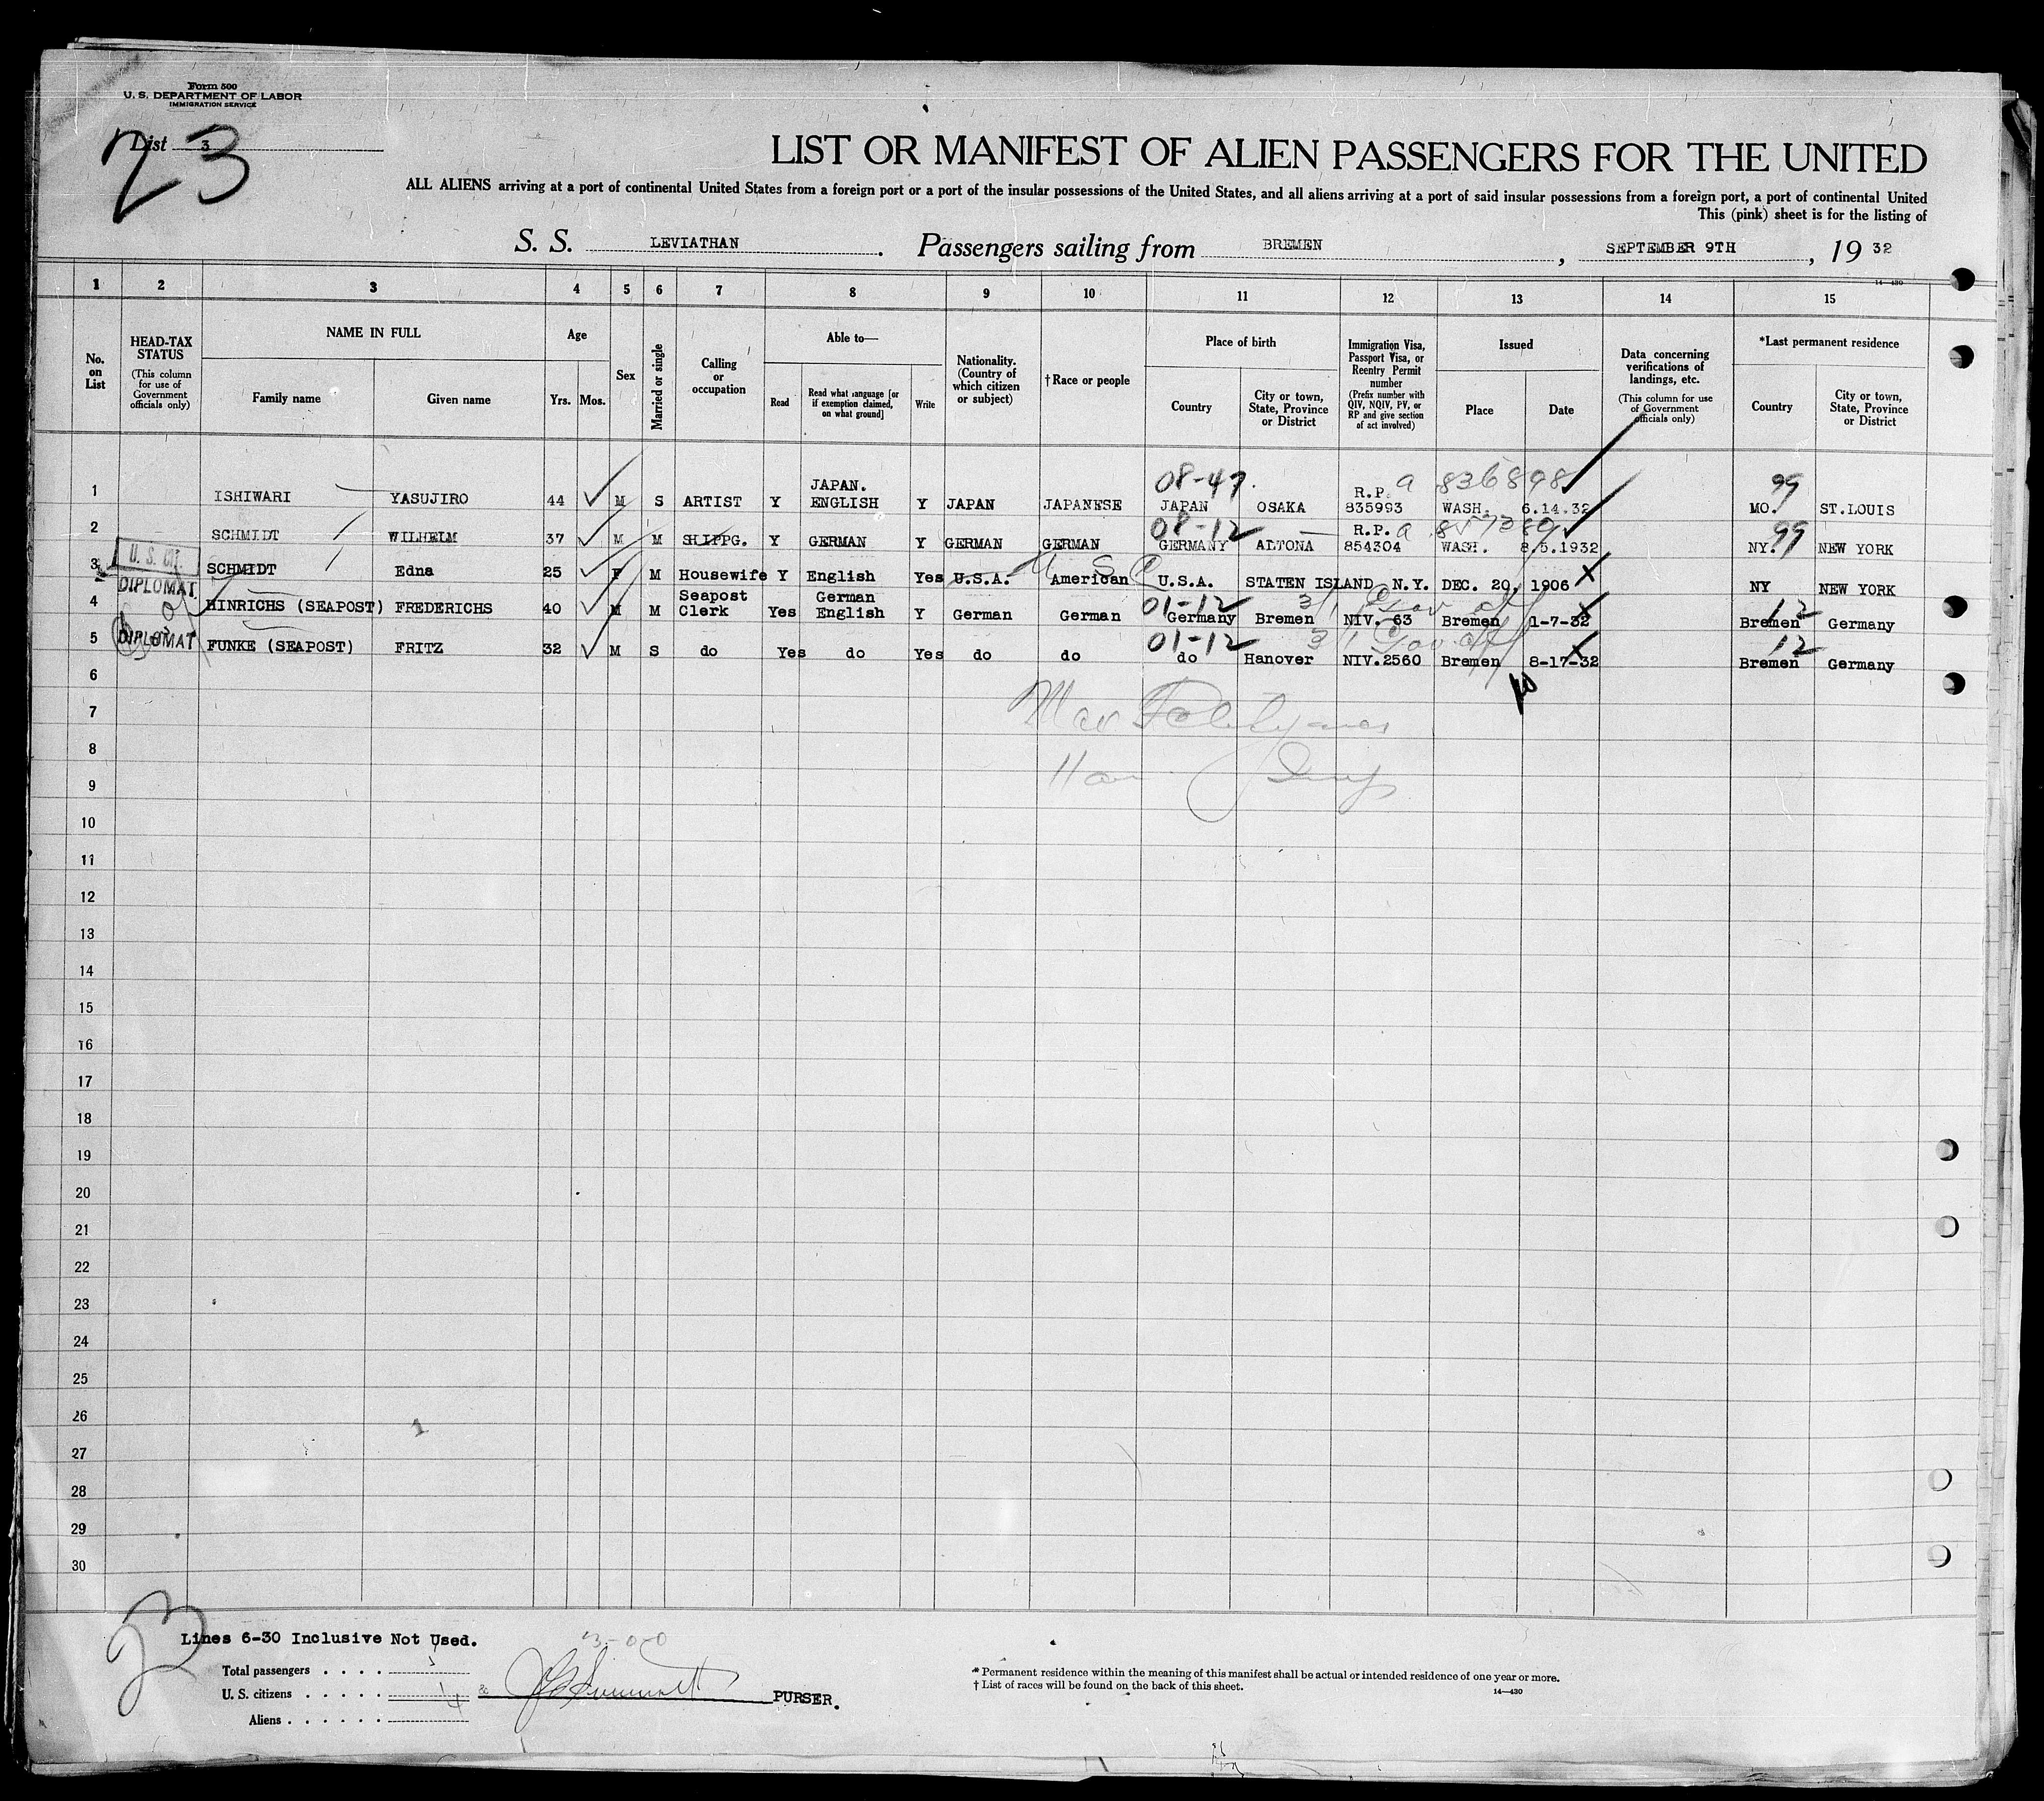 Form 500
U. S. DEPARTMENT OF LABOR
IMMIGRATION SERVICE
List 3
23
LIST OR MANIFEST OF ALIEN PASSENGERS FOR THE UNITED
ALL ALIENS arriving at a port of continental United States from a foreign port or a port of the insular possessions of the United States, and all aliens arriving at a port of said insular possessions from a foreign port, a port of continental United
This (pink) sheet is for the listing of
S. S. LEVIATHAN . Passengers sailing from BREMEN , SEPTEMBER 9TH , 19 32
14—430
1 2 3 4 5 6 7 8 9 10 11 12 13 14 15
No. on List
HEAD-TAX STATUS
(This column for use of Government officials only)
NAME IN FULL
Family name
Given name
Age
Yrs. Mos.
Sex
Married or single
Calling or occupation
Able to—
Read
Read what language [or if exemption claimed, on what ground]
Write
Nationality. (Country of which citizen or subject)
†Race or people
Place of birth
Country
City or town, State, Province or District
Immigration Visa, Passport Visa, or Reentry Permit number
(Prefix number with QIV, NQIV, PV, or RP and give section of act involved)
Issued
Place
Date
Data concerning verifications of landings, etc.
(This column for use of Government officials only)
*Last permanent residence
Country
City or town, State, Province or District
08-47 a 836898 99
1 ISHIWARI YASUJIRO 44 M S ARTIST Y JAPAN. ENGLISH Y JAPAN JAPANESE JAPAN OSAKA R.P. 835993 WASH. 6.14.32 MO. ST.LOUIS
08-12 a 99
2 SCHMIDT WILHELM 37 M M SHIPPG. Y GERMAN Y GERMAN GERMAN GERMANY ALTONA R.P. 854304 WASH. 8.5.1932 NY. NEW YORK
U. S. CIT. U S C
3 SCHMIDT Edna 25 F M Housewife Y English Yes U.S.A. American U.S.A. STATEN ISLAND N.Y. DEC. 20, 1906 NY NEW YORK
DIPLOMAT 01-12 3/1 Gov off 12
4 HINRICHS (SEAPOST) FREDERICHS 40 M M Seapost Clerk Yes German English Y German German Germany Bremen NIV. 63 Bremen 1-7-32 Bremen Germany
DIPLOMAT 01-12 3/1 Gov off 12
5 FUNKE (SEAPOST) FRITZ 32 M S do Yes do Yes do do do Hanover NIV.2560 Bremen 8-17-32 Bremen Germany
6
7
8
9
10
11
12
13
14
15
16
17
18
19
20
21
22
23
24
25
26
27
28
29
30
23
Lines 6-30 Inclusive Not Used.
3-0-0
Total passengers . . . .
U. S. citizens . . . . . 1
Aliens . . . . . . 4
PURSER.
* Permanent residence within the meaning of this manifest shall be actual or intended residence of one year or more.
† List of races will be found on the back of this sheet.
14—430